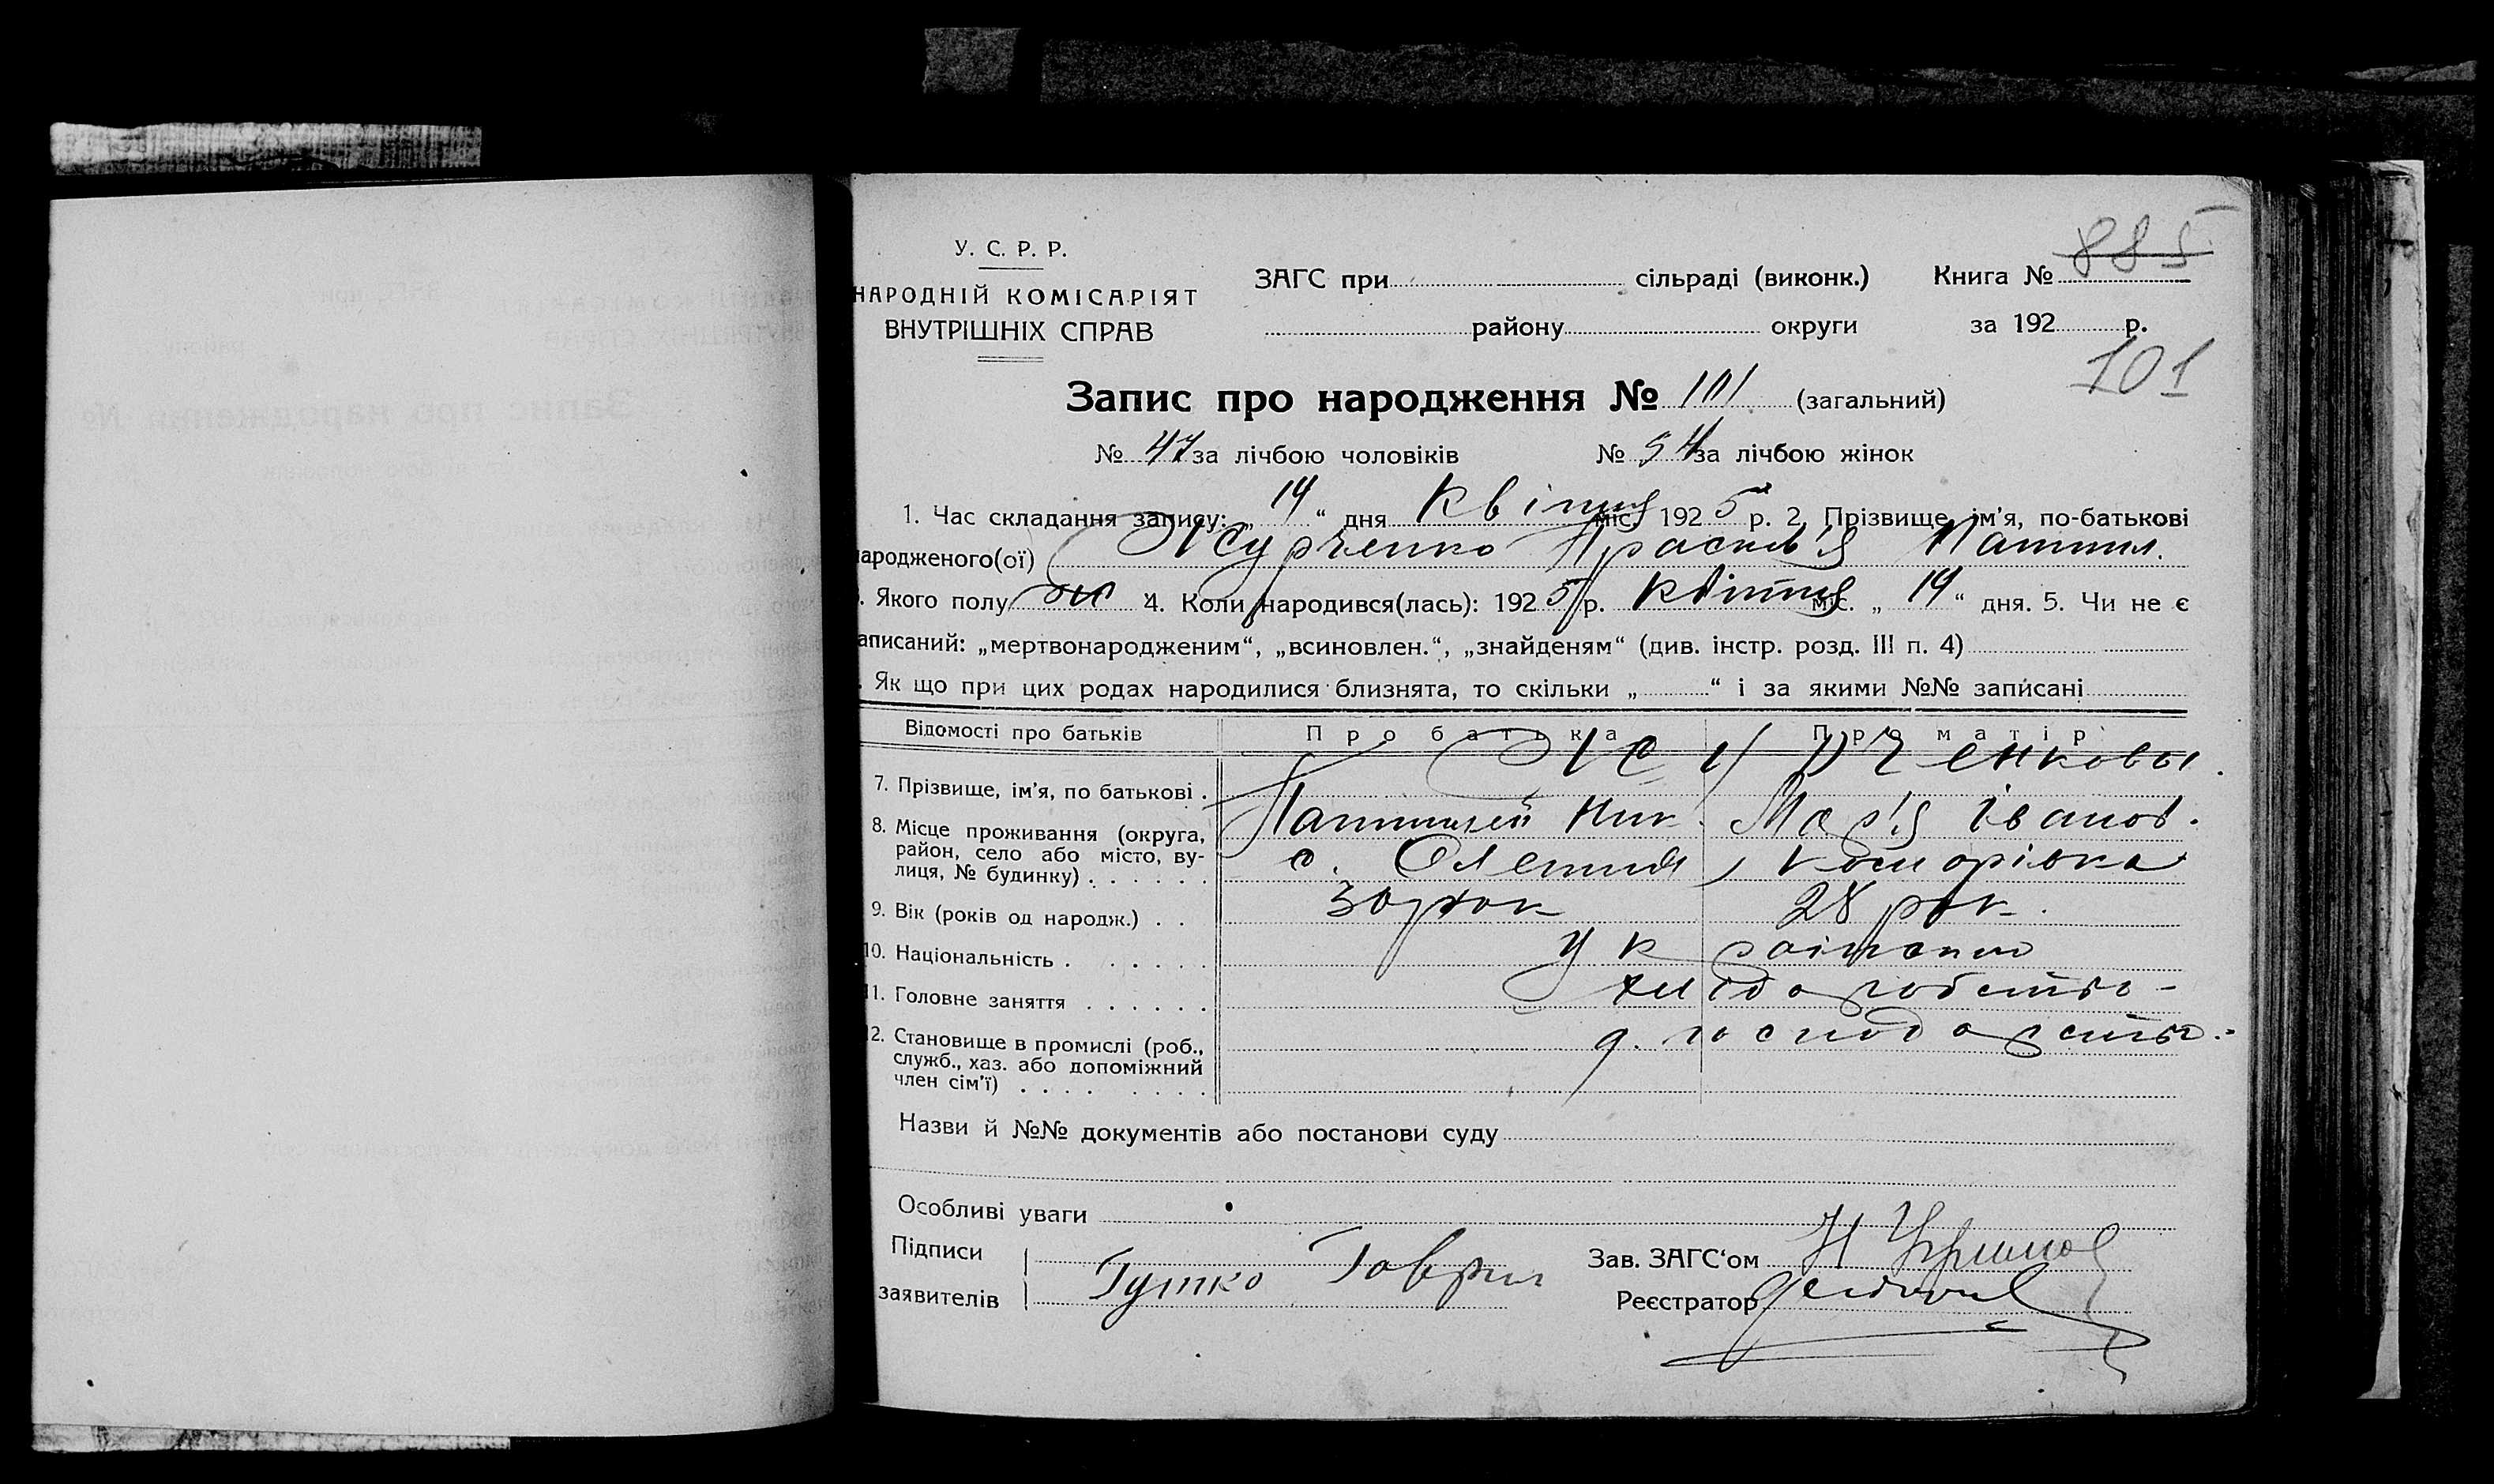 У. С. Р. Р.
НАРОДНІЙ КОМІСАРІЯТ
ВНУТРІШНІХ СПРАВ
ЗАГС при сільраді (виконк.) Книга № 885
району округи за 192 р.
101
Запис про народження № 101 (загальний)
№ 47 за лічбою чоловіків № 54 за лічбою жінок
1. Час складання запису: „ 14 “ дня Квітня міс. 192 5 р. 2. Прізвище, ім’я, по-батькові
народженого(ої) Журченко Прасков’я
Якого полу ж 4. Коли народився(лась): 192 5 р. Квітня міс. „ 14 “ дня. 5. Чи не є
аписаний: „мертвонародженим“, „всиновлен.“, „знайденям“ (див. інстр. розд. III п. 4)
Як що при цих родах народилися близнята, то скільки „ “ і за якими №№ записані
Відомості про батьків Про батька Про матір
7. Прізвище, ім’я, по батькові . Журченковы.
Мар’я Іванов.
8. Місце проживання (округа, район, село або місто, вулиця, № будинку) . . . . . . с.
9. Вік (років од народж.) . . 30 рок 28 рок.
10. Національність . . . . . . Українці
11. Головне заняття . . . . . . хліборобство
12. Становище в промислі (роб., служб., хаз. або допоміжний член сім’ї) . . . . . . . .
Назви й №№ документів або постанови суду
Особливі уваги
Підписи
заявителів Гутко Гаврил
Зав. ЗАГС‘ом
Реєстратор